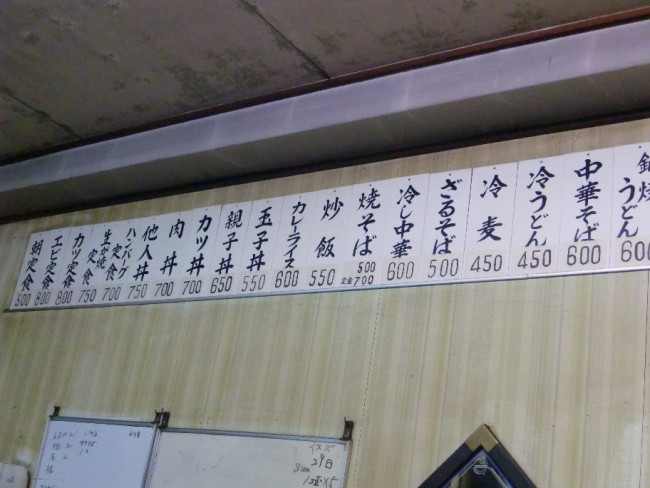 鍋焼うどん 600
中華そば 600
冷うどん 450
冷麦 450
ざるそば 500
冷し中華 600
焼そば 500 定食700
炒飯 550
カレーライス 600
玉子丼 550
親子丼 650
カツ丼 700
肉丼 700
他人丼 750
ハンバーグ定食 700
生姜焼定食 750
カツ定食 800
エビ定食 800
朝定食 500
29日